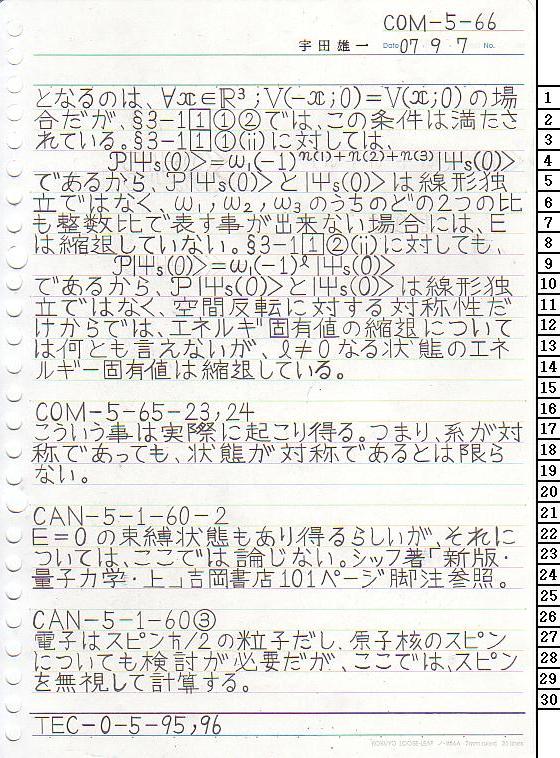 COM-5-66
宇田雄一 Date 07・9・7 No.
となるのは、∀x∈ℝ³;V(-x;0)=V(x;0)の場
合だが、§3-1[1]①②では、この条件は満たさ
れている。§3-1[1]①(ii)に対しては、
𝒫|Ψs(0)>=ω₁(-1)^{n(1)+n(2)+n(3)}|Ψs(0)>
であるから、𝒫|Ψs(0)>と|Ψs(0)>は線形独
立ではなく、ω₁,ω₂,ω₃のうちのどの2つの比
も整数比で表す事が出来ない場合には、E
は縮退していない。§3-1[1]②(ii)に対しても、
𝒫|Ψs(0)>=ω₁(-1)^ℓ|Ψs(0)>
であるから、𝒫|Ψs(0)>と|Ψs(0)>は線形独
立ではなく、空間反転に対する対称性だ
けからでは、エネルギ固有値の縮退について
は何とも言えないが、ℓ≠0なる状態のエネ
ルギー固有値は縮退している。
COM-5-65-23,24
こういう事は実際に起こり得る。つまり、系が対
称であっても、状態が対称であるとは限ら
ない。
CAN-5-1-60-2
E=0の束縛状態もあり得るらしいが、それに
ついては、ここでは論じない。シッフ著「新版・
量子力学・上」吉岡書店101ページ脚注参照。
CAN-5-1-60③
電子はスピンℏ/2の粒子だし、原子核のスピン
についても検討が必要だが、ここでは、スピン
を無視して計算する。
TEC-0-5-95,96
KOKUYO LOOSE-LEAF ノ-836A 7mm ruled 30 lines
1
2
3
4
5
6
7
8
9
10
11
12
13
14
15
16
17
18
19
20
21
22
23
24
25
26
27
28
29
30